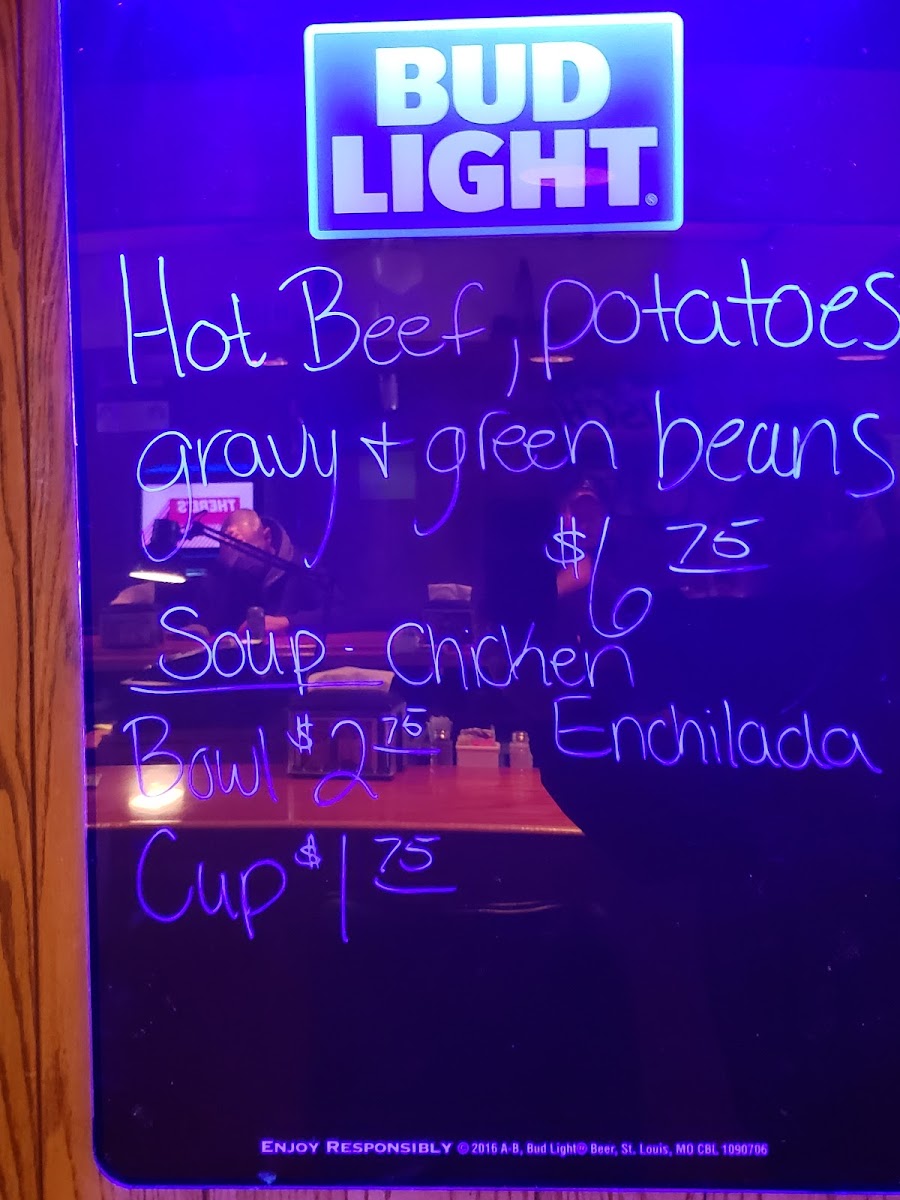 BUD
LIGHT®
Hot Beef, potatoes
gravy + green beans
$6 75
Soup - Chicken
Enchilada
Bowl $2 75
Cup $1 75
THERE'S
ENJOY RESPONSIBLY © 2016 A-B, Bud Light® Beer, St. Louis, MO CBL 1090706